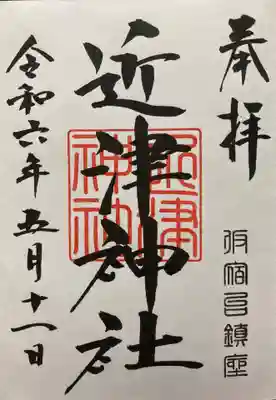 奉拝
宿邑鎮座
近津神社
近津
神社
令和六年五月十一日